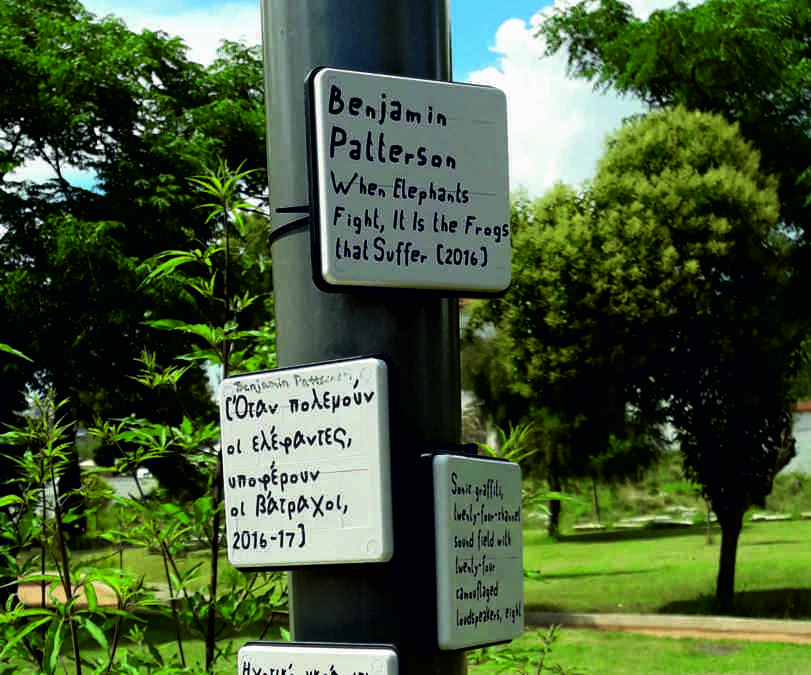 Benjamin
Patterson
When Elephants
Fight, It Is the Frogs
that Suffer [2016]
Benjamin Patterson,
[Όταν πολεμούν
οι ελέφαντες,
υποφέρουν
οι βάτραχοι,
2016-17]
Sonic graffiti,
twenty-four-channel
sound field with
twenty-four
camouflaged
loudspeakers, eight